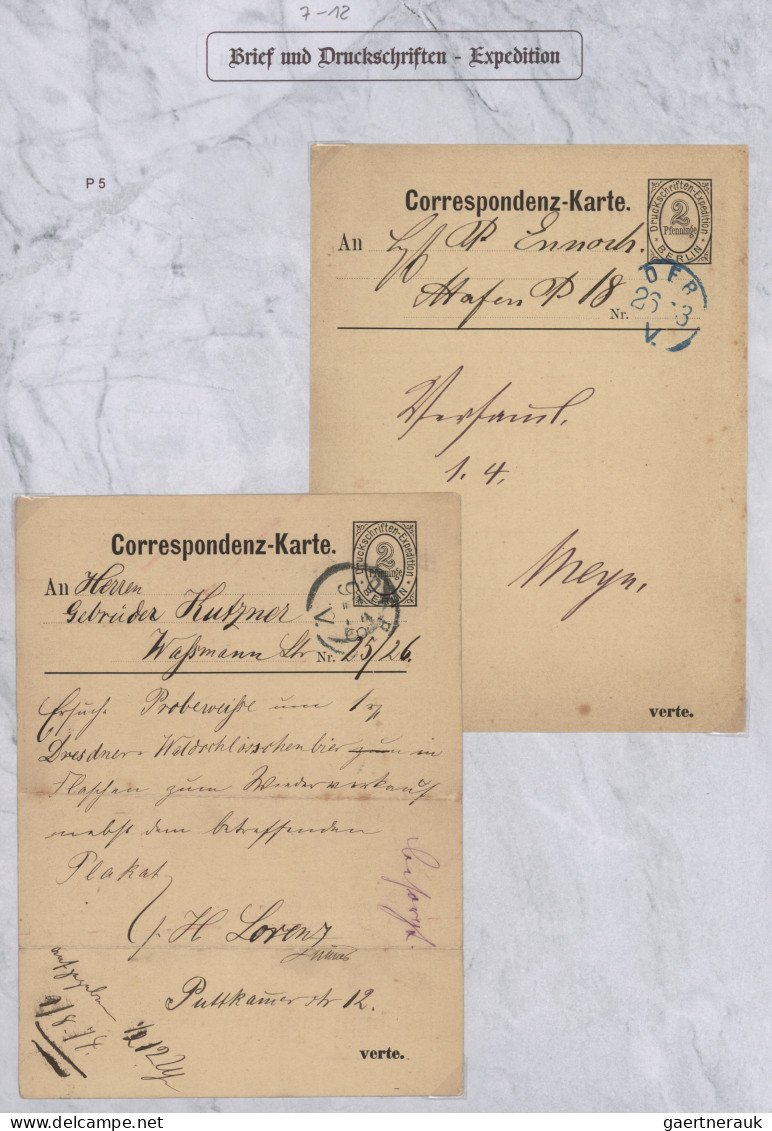 7-12
Brief und Druckschriften - Expedition
P 5
Correspondenz-Karte.
Druckschriften-Expedition
2
Pfenninge
BERLIN
An
P Ennoch.
Hafen P 18
Nr.
DER
26 3
V.
Versaml.
1. 4.
Meyn.
verte.
Correspondenz-Karte.
Druckschriften-Expedition
2
Pfenninge
BERLIN
An Herren
Gebrüder Kutzner
Waßmann Str Nr. 25/26.
V.
Ersuche Probeweise um 1
Dresdner Waldschlösschenbier zum in
Flaschen zum Wiederverkauf
nebst dem betreffenden
Plakat
H Lorenz
besorgt.
Puttkamerstr 12.
aufgegeben
9/8. 74.
1/2 12 Uhr
verte.
gaertnerauk